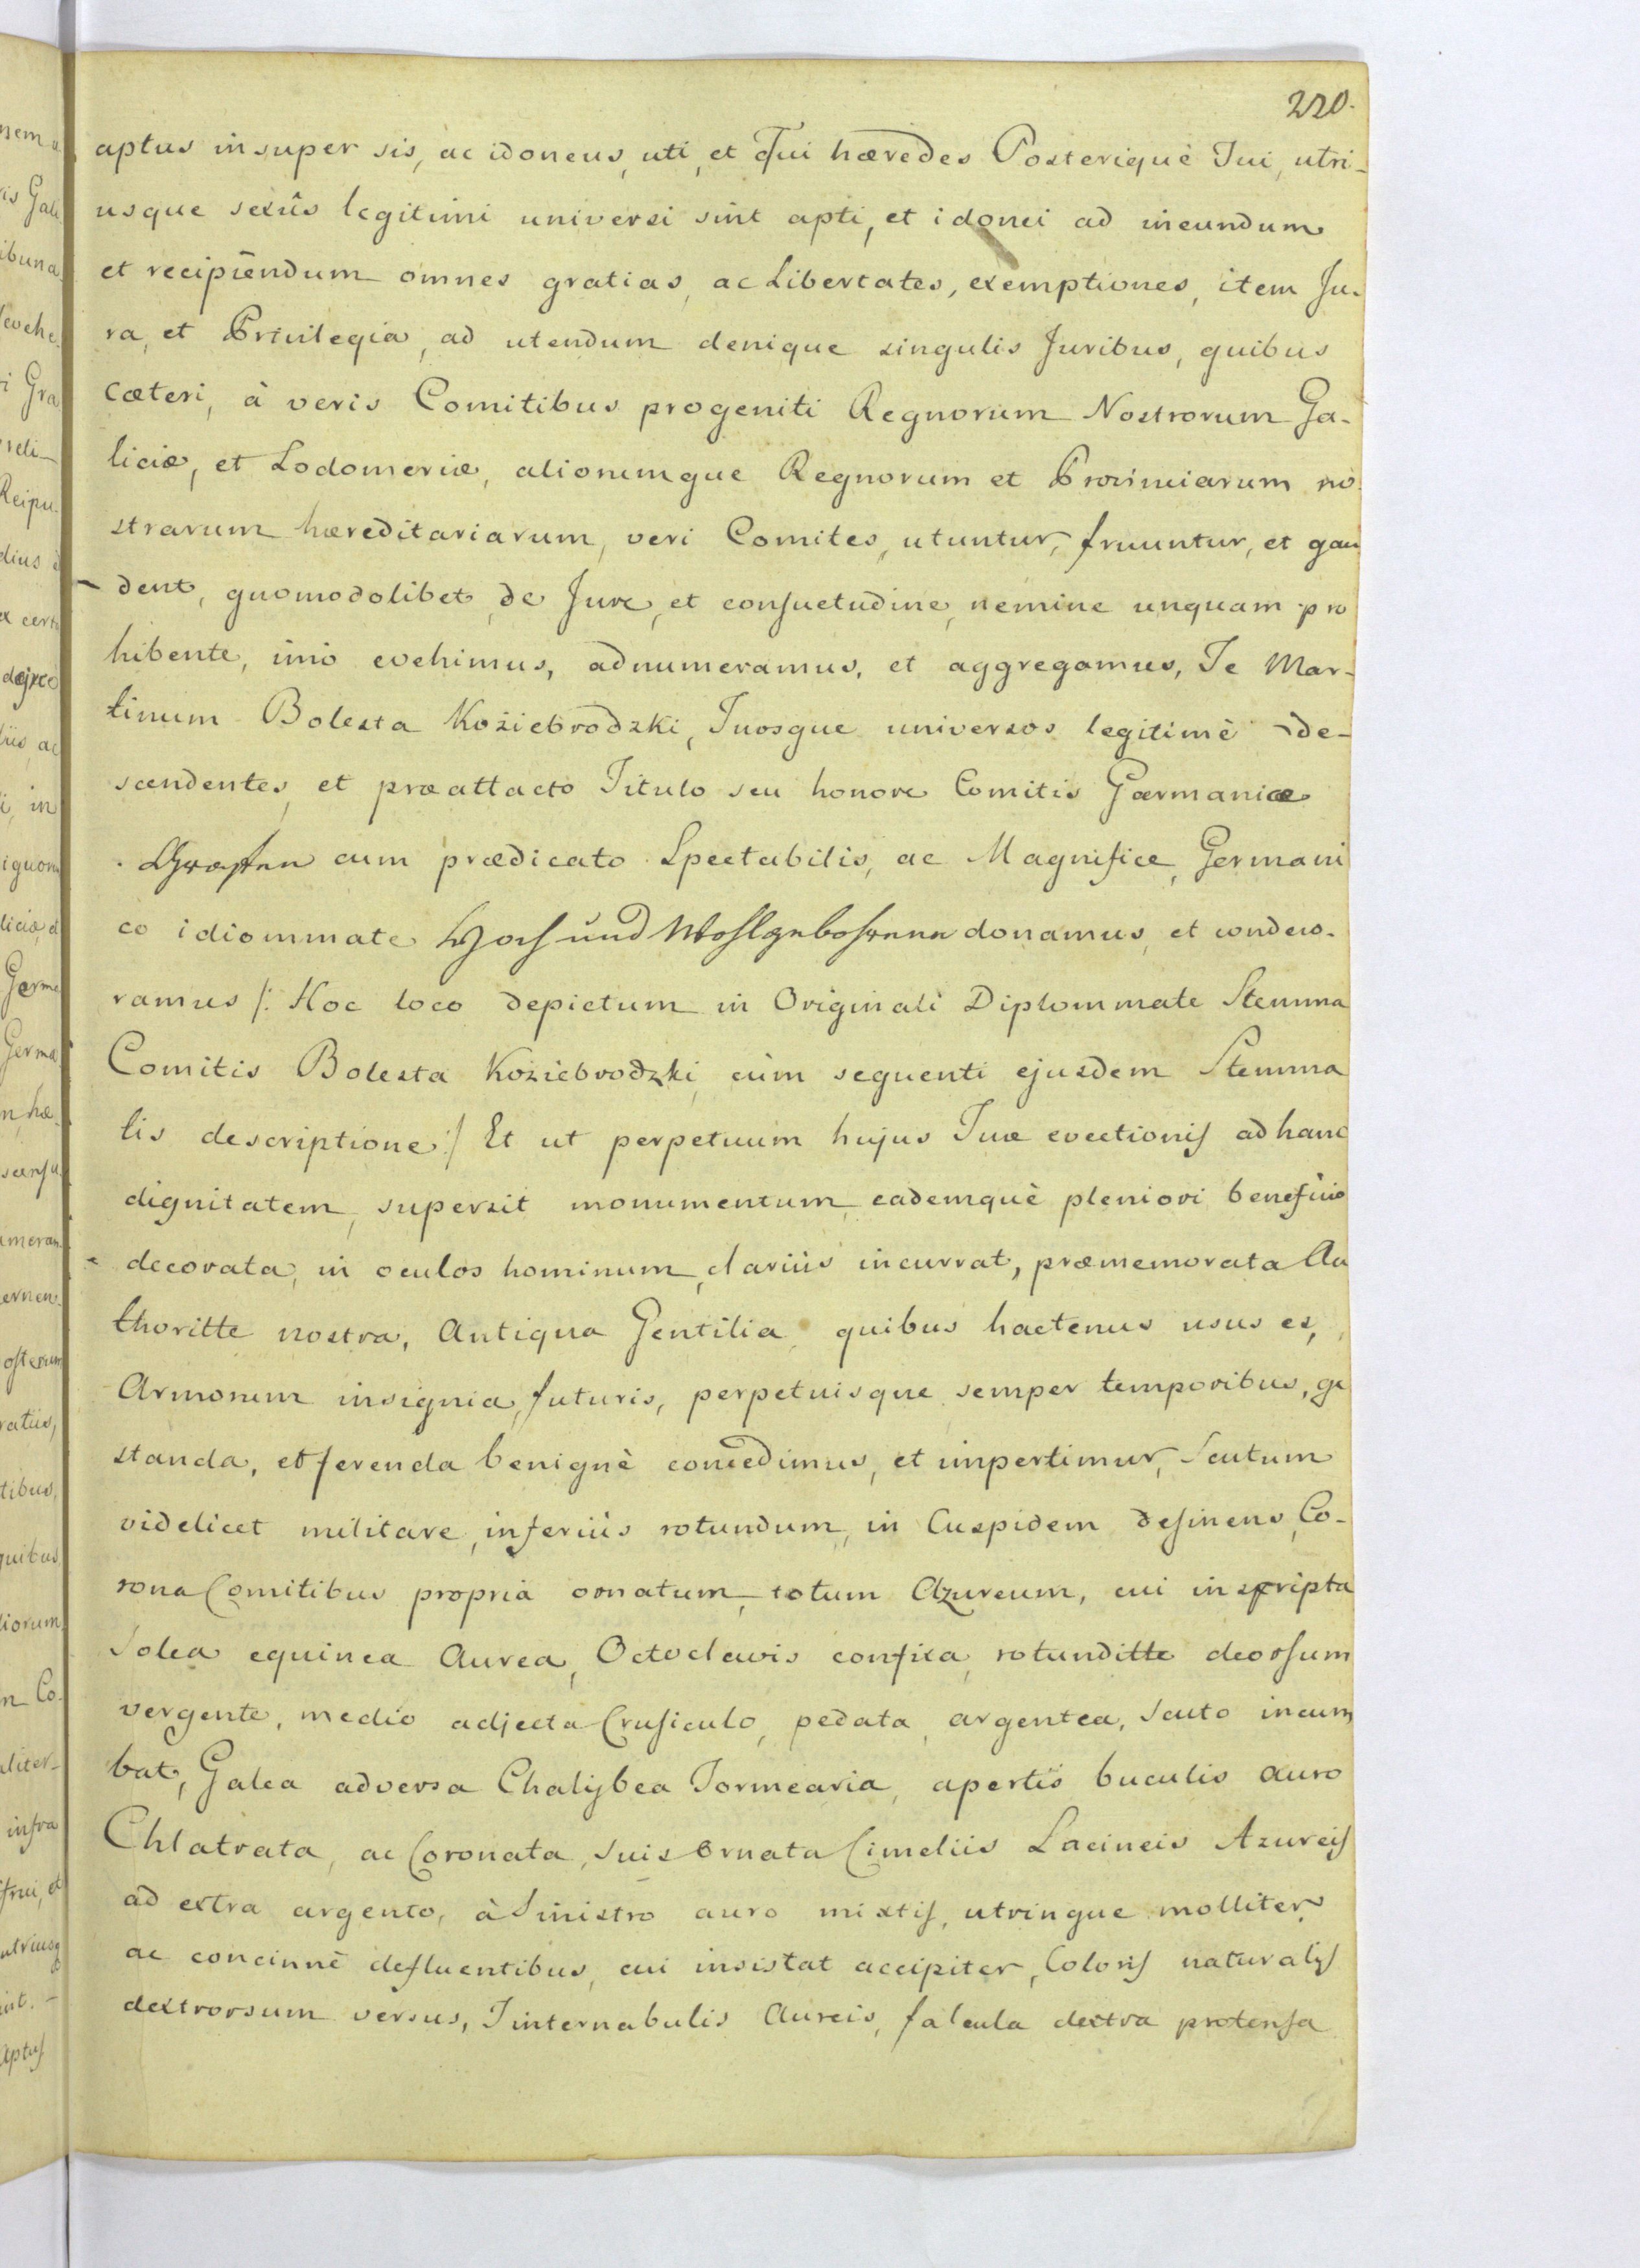 220.
aptus insuper sis, ac idoneus, uti, et Tui hæredes Posteriquè Tui, utri-
usque sexûs legitimi universi sint apti, et idonei ad ineundum
et recipiendum omnes gratias, ac Libertates, exemptiones, item Ju-
ra, et Privilegia, ad utendum denique singulis Juribus, quibus
cæteri, à veris Comitibus progeniti Regnorum Nostrorum Ga-
liciæ, et Lodomeriæ, aliorumque Regnorum et Provinciarum no
strarum hæreditariarum, veri Comites, utuntur, fruuntur, et gau
- dent, quomodolibet, de Jure, et consuetudine, nemine unquam pro
hibente, imò evehimus, adnumeramus, et aggregamus, Te Mar-
tinum Bolesta Koziebrodzki, Tuosque universos legitimè de-
scendentes, et præattacto Titulo seu honore Comitis Gærmanice
Grafen cum prædicato Spectabilis, ac Magnifice, Germani
co idiommate Hoch und Wohlgebohrene donamus, et condeco-
ramus /: Hoc loco depictum in Originali Diplommate Stemma
Comitis Bolesta Koziebrodzki, cùm sequenti ejusdem Stemma
tis descriptione :/ Et ut perpetuum hujus Tuæ evectionis ad hanc
dignitatem, supersit monumentum, eademquè pleniori beneficio
- decorata, in oculos hominum, clariùs incurrat, præmemorata Au
thoritte nostra, Antiqua Gentilia, quibus hactenus usus es,
Armorum insignia, futuris, perpetuisque semper temporibus, ge
standa, et ferenda benignè concedimus, et impertimur, Scutum
videlicet militare, inferiùs rotundum, in Cuspidem desinens, Co-
rona Comitibus propria ornatum, totum Azureum, cui inscripta
Solea equinea Aurea, Octo clavis confixa, rotunditte deorsum
vergente, medio adjecta Crusiculo, pedata, argentea, Scuto incum
bat, Galea adversa Chalijbea Tornearia, apertis buculis auro
Chlatrata, ac Coronata, suis Ornata Cimeliis Lacineis Azureis
ad extra argento, à Sinistro auro mixtis, utrinque molliter,
ac concinnè defluentibus, cui insistat accipiter, Coloris naturalis
dextrorsum versus, Tinternabulis Aureis, falcula dextra protensa